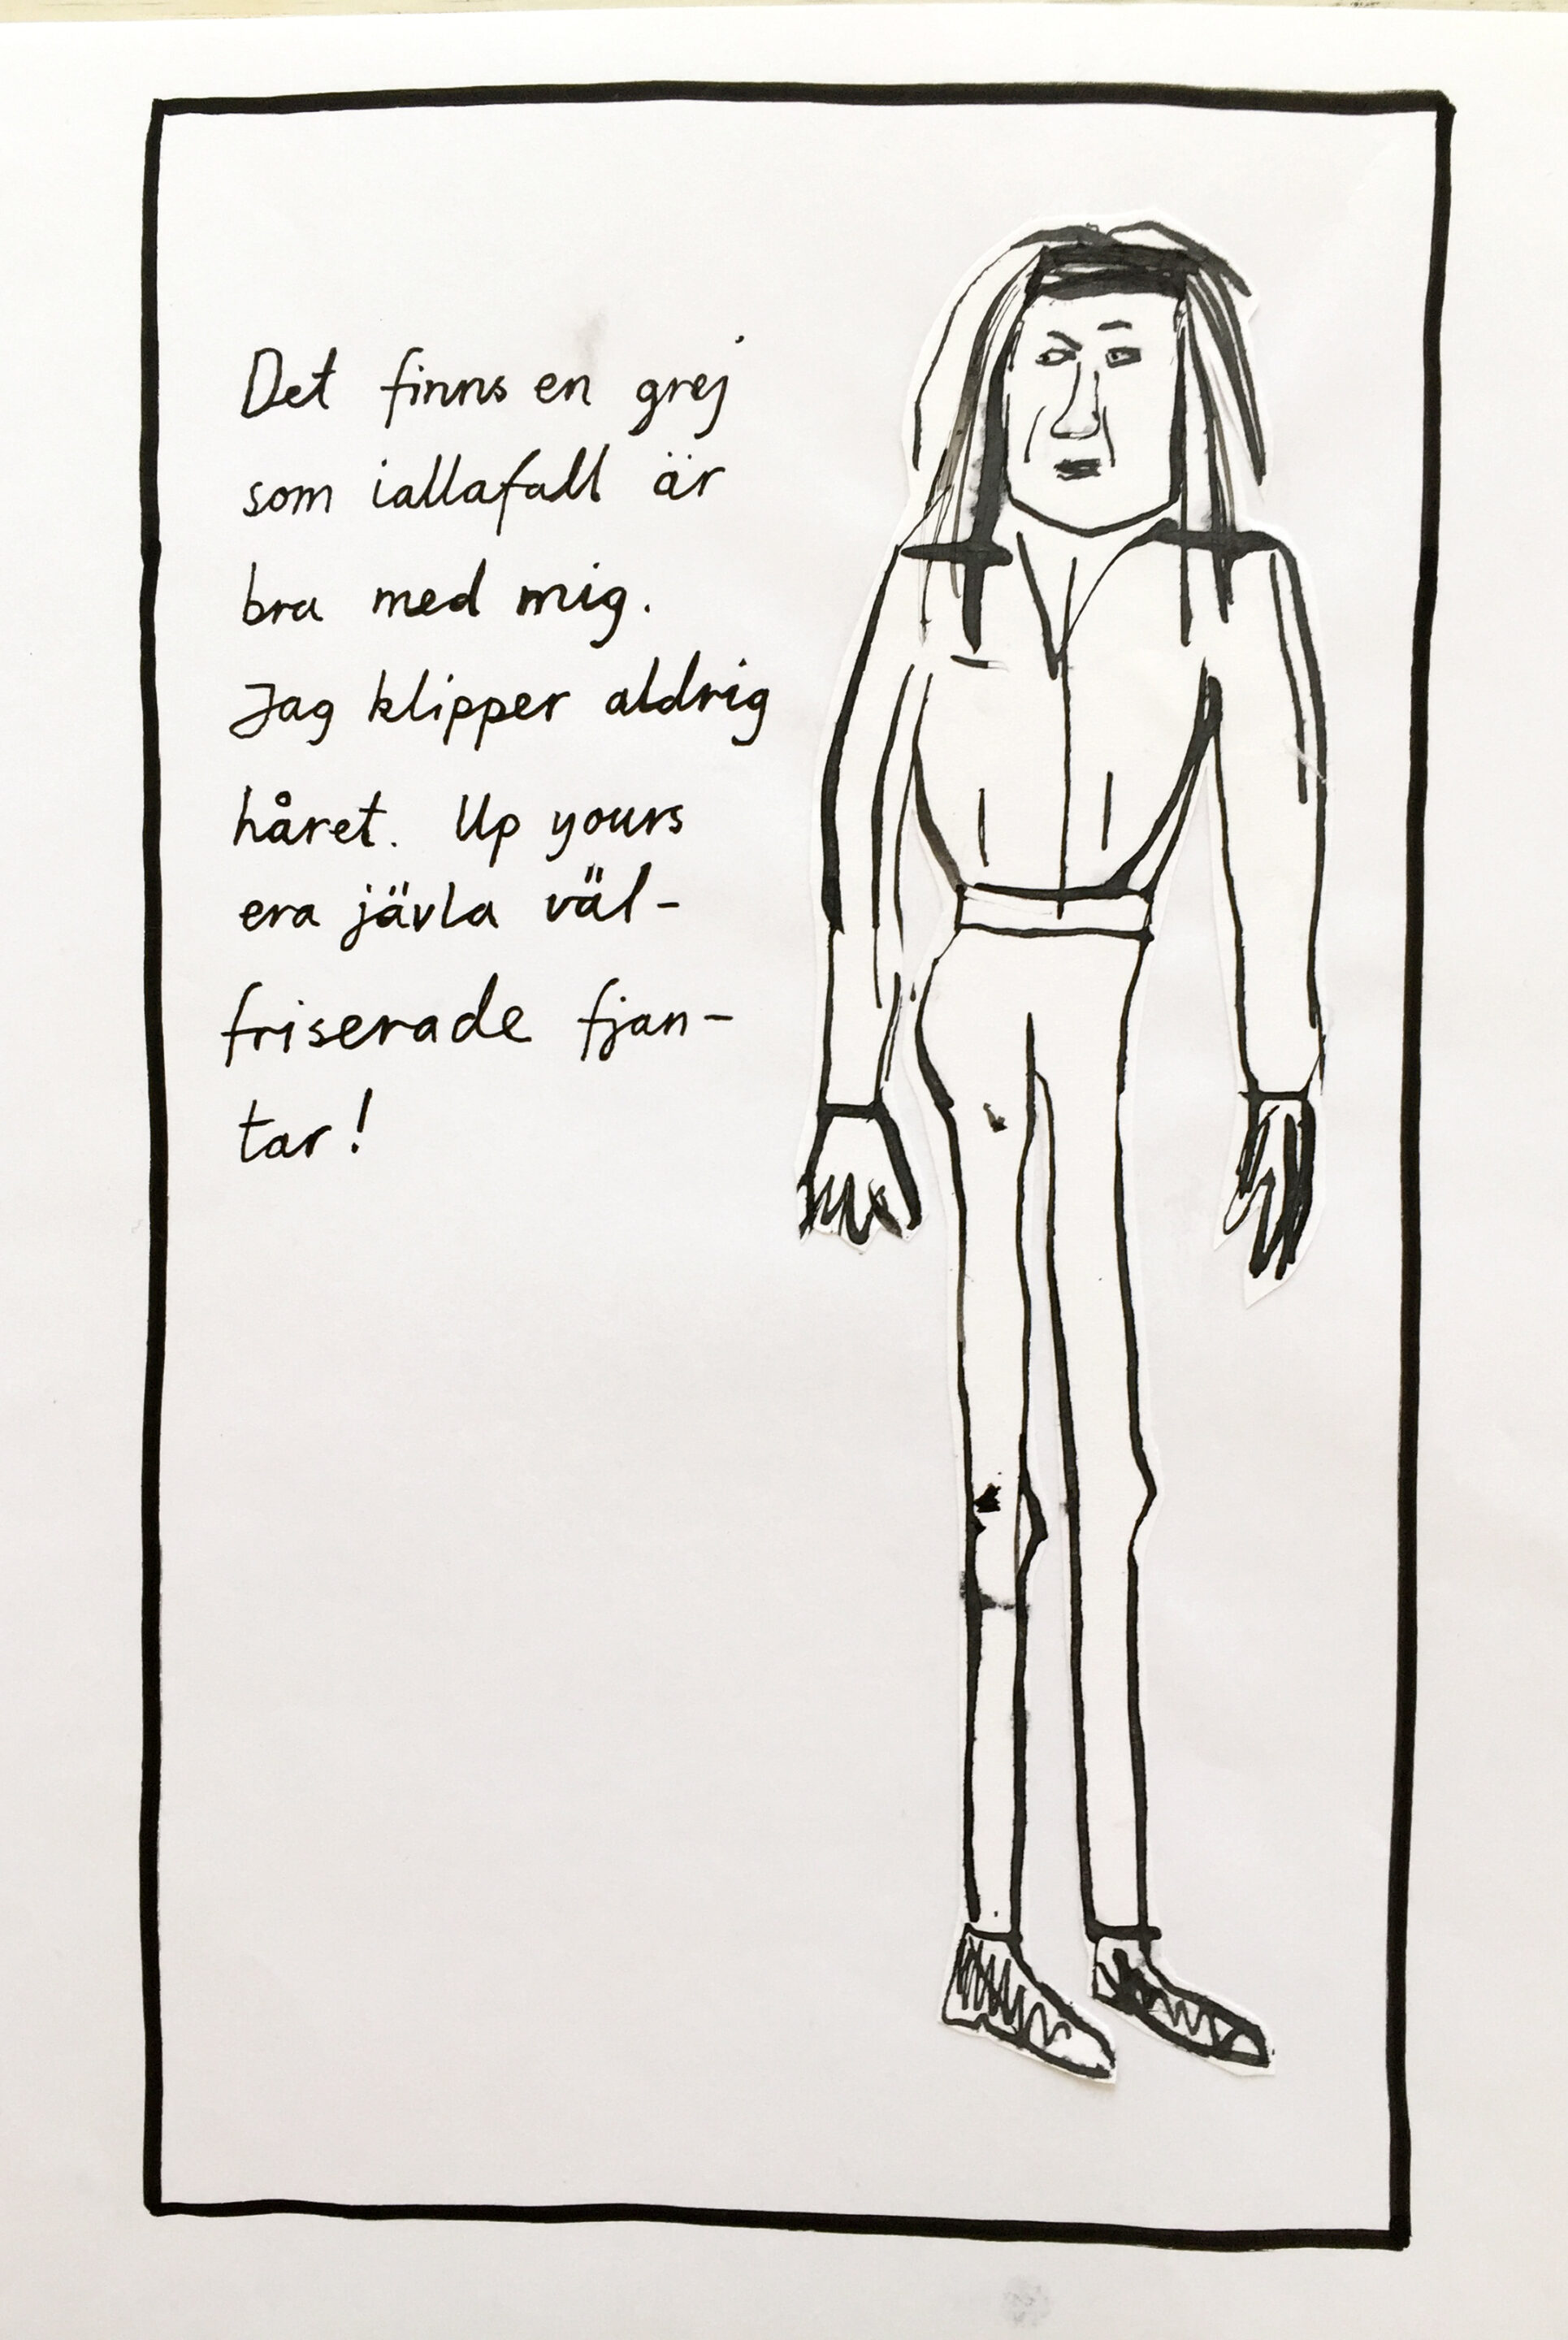 Det finns en grej
som iallafall är
bra med mig.
Jag klipper aldrig
håret. Up yours
era jävla väl-
friserade fjan-
tar!